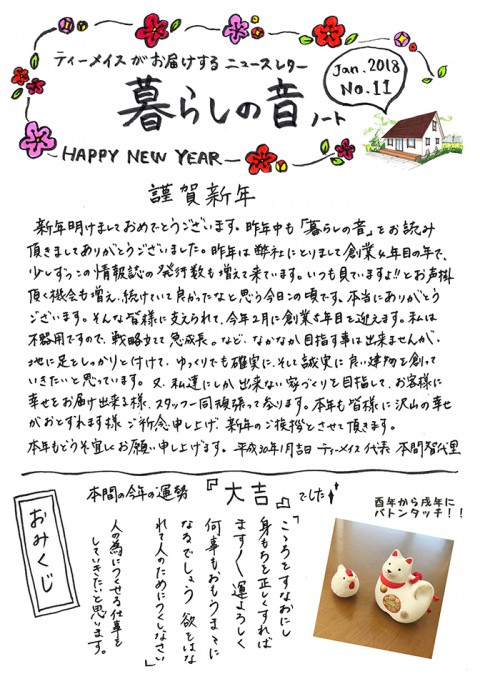 ティーメイスがお届けするニュースレター
Jan.2018
No.11
暮らしの音ノート
HAPPY NEW YEAR
謹賀新年
新年明けましておめでとうございます。昨年中も「暮らしの音」をお読み
頂きましてありがとうございました。昨年は弊社にとりまして創業4年目の年で、
少しずつこの情報誌の発行数も増えて来ています。いつも見ていますよ!!とお声掛
頂く機会も増え、続けていて良かったなと思う今日この頃です。本当にありがとう
ございます。そんな皆様に支えられて、今年2月に創業5年目を迎えます。私は
不器用ですので、戦略立てて急成長。など、なかなか目指す事は出来ませんが、
地に足をしっかりと付けて、ゆっくりでも確実に、そして誠実に良い建物を創って
いきたいと思っています。又、私達にしか出来ない家づくりを目指して、お客様に
幸せをお届け出来る様、スタッフ一同頑張って参ります。本年も皆様に沢山の幸せ
がおとずれます様ご祈念申し上げ、新年のご挨拶とさせて頂きます。
本年もどうぞ宜しくお願い申し上げます。平成30年1月吉日 ティーメイス 代表 本間智代里
本間の今年の運勢『大吉』でした
酉年から戌年に
バトンタッチ!!
おみくじ
「こころをすなおにし
身もちを正しくすれば
ますます運よろしく
何事もおもうままに
なるでしょう 欲をはな
れて人のためにつくしなさい」
人の為につくせる仕事を
していきたいと思います。